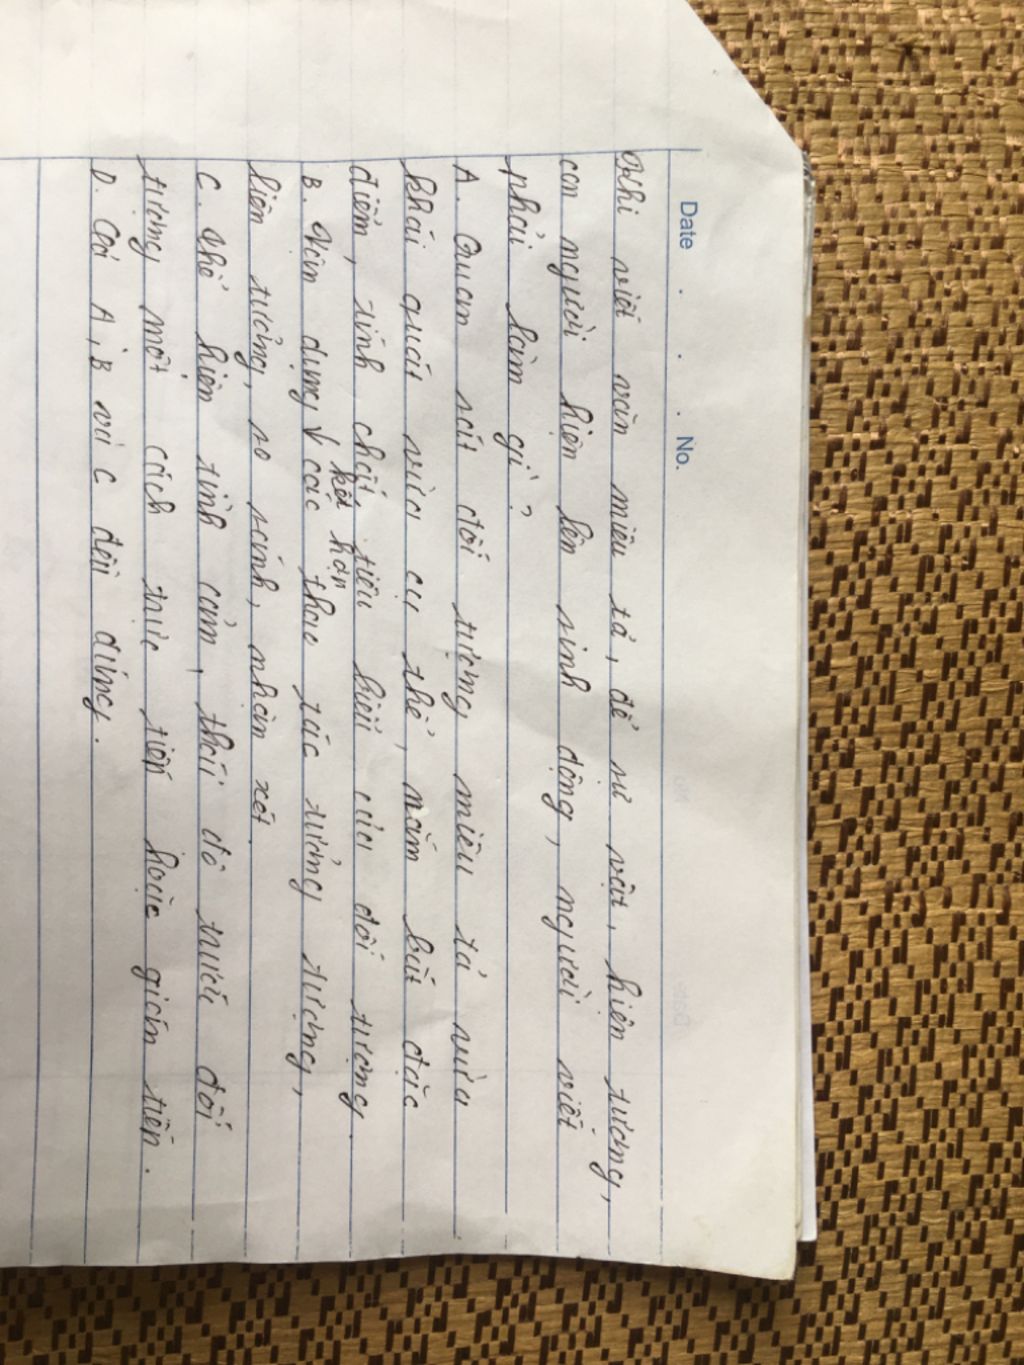 Date . . . No.
Khi viết văn miêu tả, để sự vật, hiện tượng,
con người hiện lên sinh động, người viết
phải làm gì?
A. Quan sát đối tượng miêu tả vừa
khái quát vừa cụ thể, nắm bắt đặc
điểm, tính chất tiêu biểu của đối tượng.
B. Vận dụng kết hợp các thao tác tưởng tượng,
liên tưởng, so sánh, nhận xét.
C. Thể hiện tình cảm, thái độ trước đối
tượng một cách trực tiếp hoặc gián tiếp.
D. Cả A, B và C đều đúng.